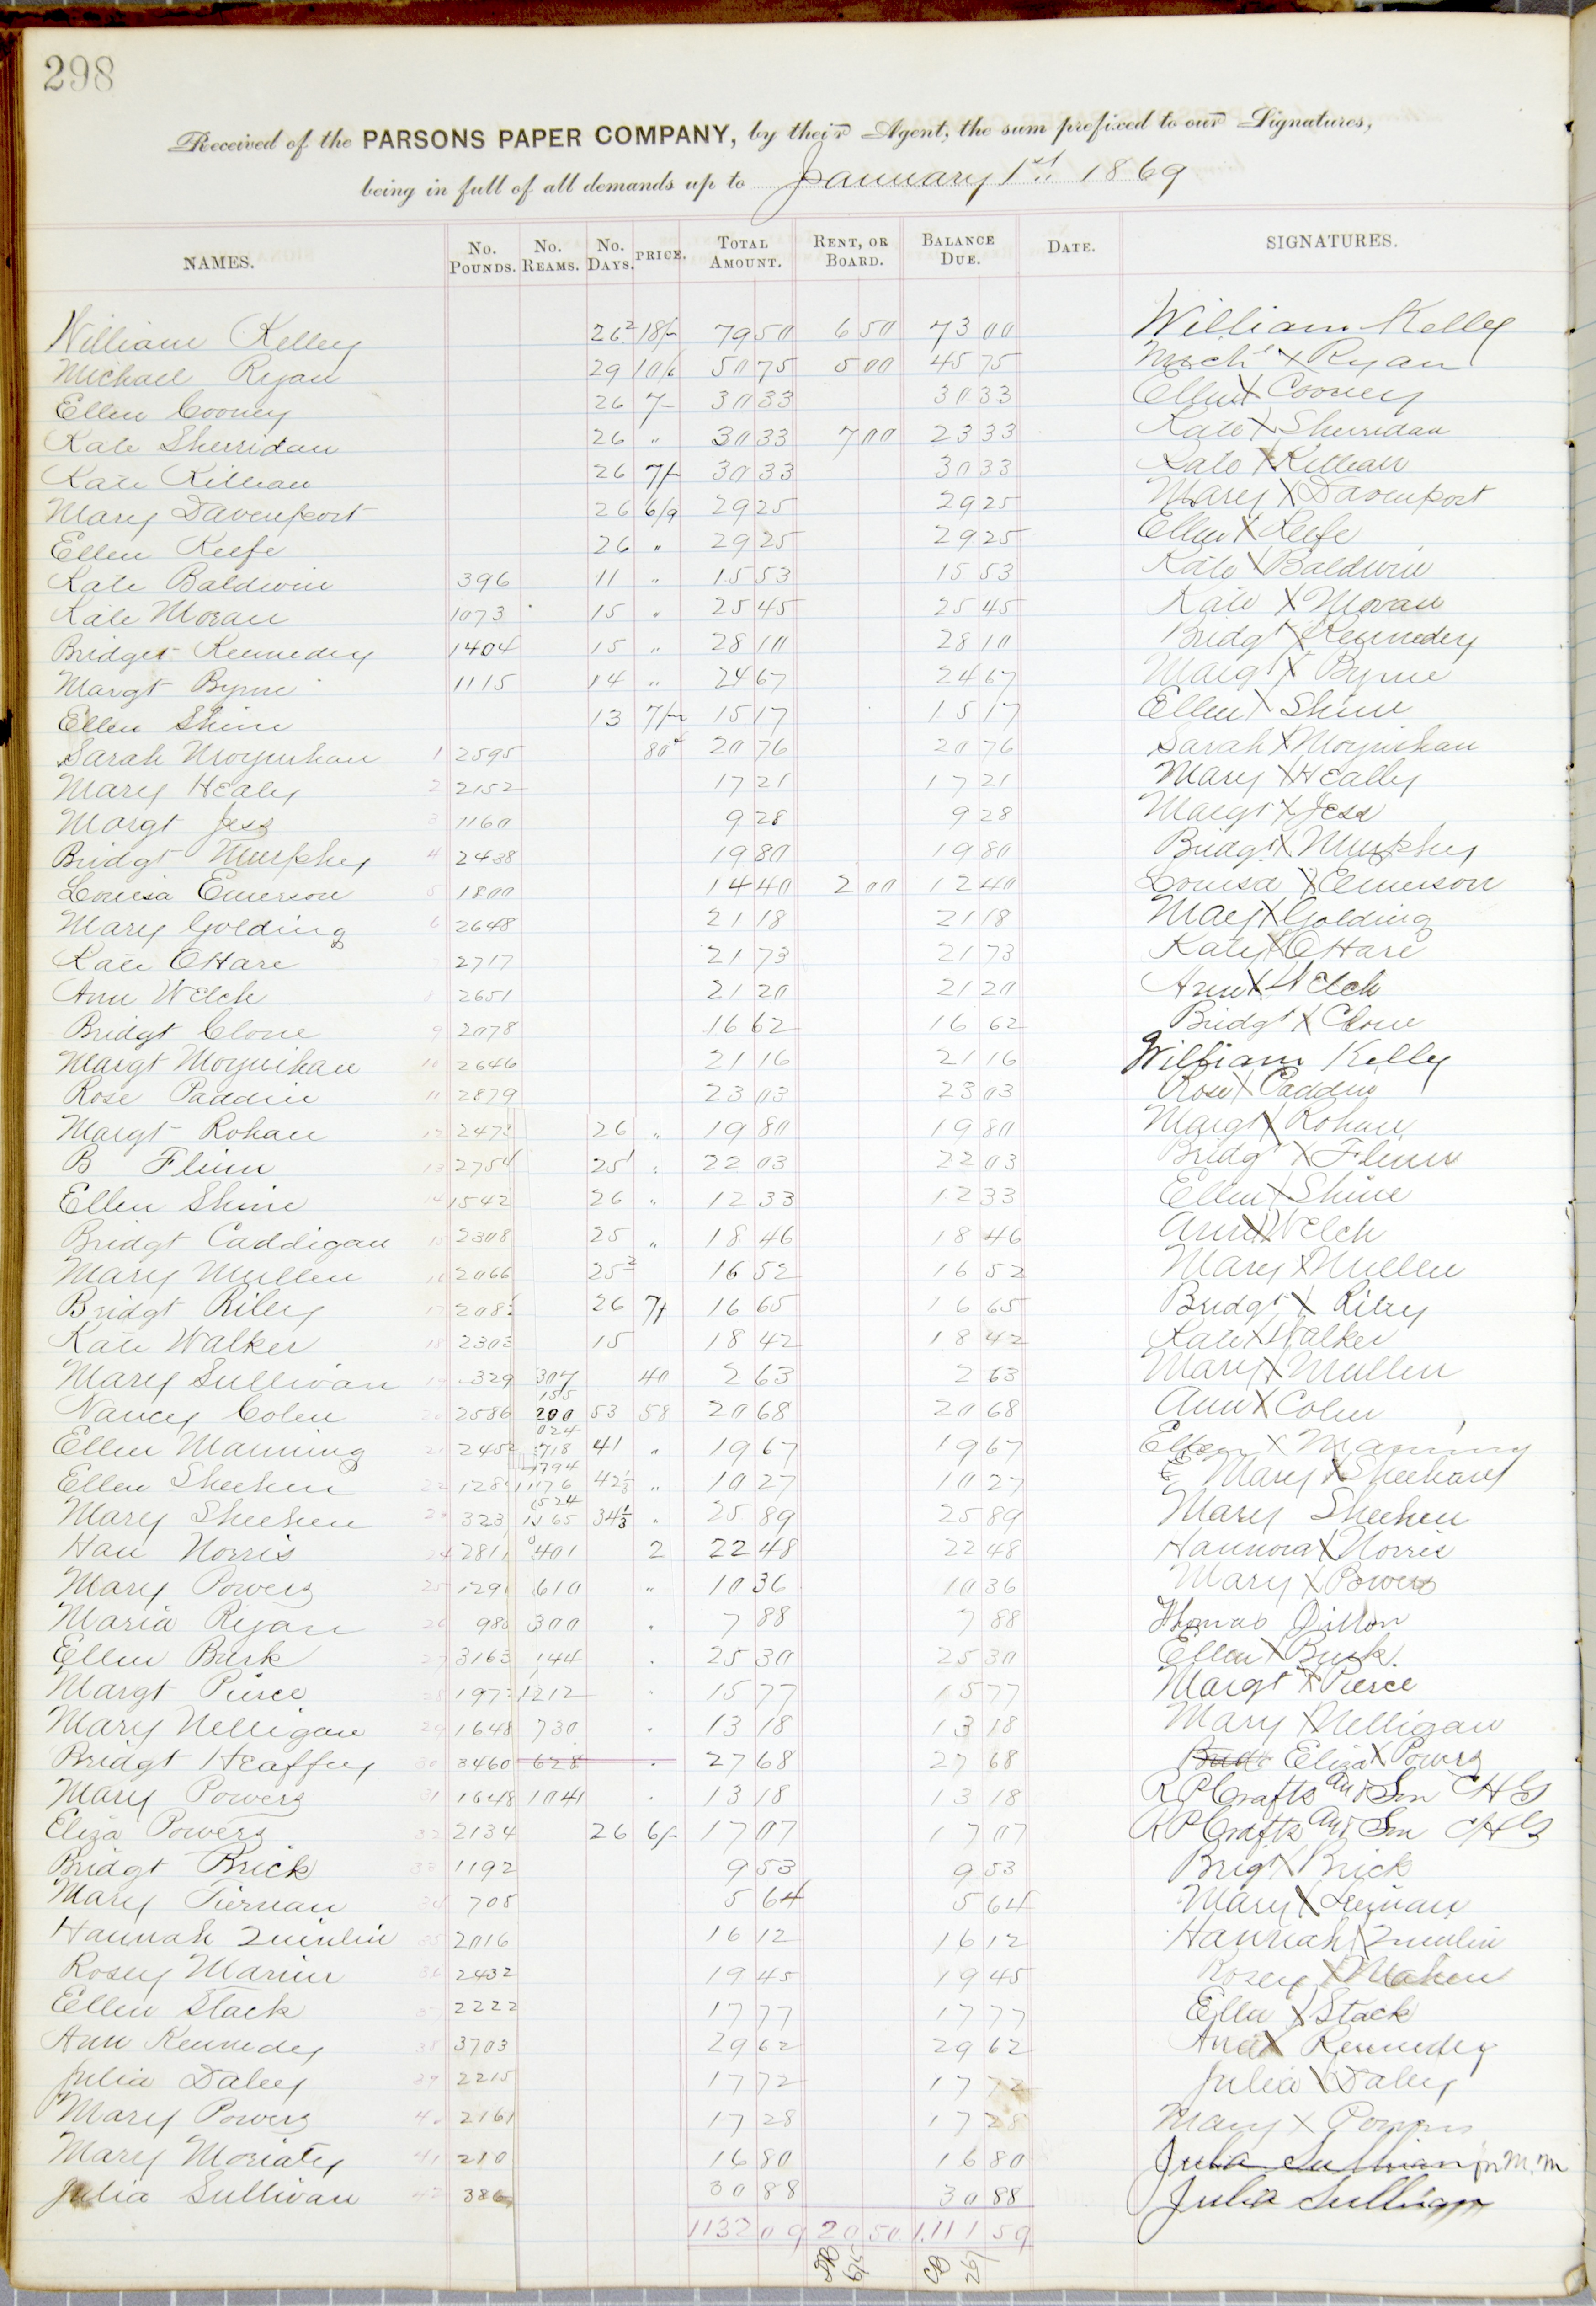 298
Received of the PARSONS PAPER COMPANY, by their Agent, the sum prefixed to our Signatures,
being in full of all demands up to January 1st 1869
NAMES. No. POUNDS. No. REAMS. No. DAYS. PRICE. TOTAL AMOUNT. RENT, OR BOARD. BALANCE DUE. DATE. SIGNATURES.
William Kelley 26² 18/- 79 50 6 50 73 00 William Kelley
Michael Ryan 29 10/6 50 75 5 00 45 75 Mich'l X Ryan
Ellen Cooney 26 7- 30 33 30 33 Ellen X Cooney
Kate Sherridan 26 " 30 33 7 00 23 33 Kate X Sherridan
Kate Killean 26 7/- 30 33 30 33 Kate X Killean
Mary Davenport 26 6/9 29 25 29 25 Mary X Davenport
Ellen Keefe 26 " 29 25 29 25 Ellen X Keefe
Kate Baldwin 396 11 " 15 53 15 53 Kate X Baldwin
Kate Moran 1073 15 " 25 45 25 45 Kate X Moran
Bridget Kennedey 1404 15 " 28 10 28 10 Bridgt X Kennedey
Margt Byrne 1115 14 " 24 67 24 67 Margt X Byrne
Ellen Shine 13 7/- 15 17 15 17 Ellen X Shine
Sarah Moynihan 1 2595 80¢ 20 76 20 76 Sarah X Moynihan
Mary Healy 2 2152 17 21 17 21 Mary X Heally
Margt Jess 3 1160 9 28 9 28 Margt X Jess
Bridgt Murphey 4 2438 19 80 19 80 Bridgt X Murphey
Louisa Emerson 5 1800 14 40 2 00 12 40 Louisa X Emerson
Mary Golding 6 2648 21 18 21 18 Mary X Golding
Kate OHare 2717 21 73 21 73 Katey X OHare
Ann Welch 8 2651 21 20 21 20 Ann X Welch
Bridgt Clone 9 2078 16 62 16 62 Bridgt X Clone
Margt Moynihan 10 2646 21 16 21 16 William Kelly
Rose Paddin 11 2879 23 03 23 03 Rose X Paddin
Margt Rohan 12 2473 26 " 19 80 19 80 Margt X Rohan
B Flinn 13 2754 25¹ " 22 03 22 03 Bridgt X Flinn
Ellen Shine 14 1542 26 " 12 33 12 33 Ellen X Shine
Bridgt Caddigan 15 2308 25 " 18 46 18 46 Ann X Welch
Mary Mullen 16 2066 25² 16 52 16 52 Mary X Mullen
Bridgt Riley 17 208 26 7/ 16 65 16 65 Bridgt X Riley
Kate Walker 18 2303 15 18 42 18 42 Kate X Walker
Mary Sullivan 19 329 307 40 2 63 2 63 Mary X Mullen
155
Nancy Colen 20 2586 200 53 58 20 68 20 68 Ann X Colen
024
Ellen Manning 21 245 718 41 " 19 67 19 67 Ellen X Manning
1794
Ellen Sheehen 22 128 1176 42⅓ " 10 27 10 27 Mary X Sheehan
1524
Mary Sheehen 23 323 65 34⅓ " 25 89 25 89 Mary Sheehen
Han Norris 24 281 401 2 22 48 22 48 Hannora X Norris
Mary Powers 25 129 610 " 10 36 10 36 Mary X Powers
Maria Ryan 26 98 300 . 7 88 7 88 Thomas Dillon
Ellen Burk 27 3163 144 . 25 30 25 30 Ellen X Burk.
Margt Pierce 28 197 1212 . 15 77 15 77 Margt X Pierce
Mary Nelligan 29 1648 730 . 13 18 13 18 Mary X Nelligan
Bridgt Heaffey 30 3460 628 . 27 68 27 68 Eliza X Powers
Mary Powers 31 1648 1041 . 13 18 13 18 R P Crafts and Son C H G
Eliza Powers 32 2134 26 6/- 17 07 17 07 R P Crafts and Son C H G
Bridgt Brick 33 1192 9 53 9 53 Brigt X Brick
Mary Tiernan 34 705 5 64 5 64 Mary X
Hannah Quinlin 35 2016 16 12 16 12 Hannah X Quinlin
Rosey Marim 36 2432 19 45 19 45 Rosey X Mahen
Ellen Stack 37 2222 17 77 17 77 Ellen X Stack
Ann Kennedey 38 3703 29 62 29 62 Ann X Kennedey
Julia Daley 39 2215 17 72 17 72 Julia X Daley
Mary Powers 40 2161 17 28 17 28 Mary X Powers
Mary Moriaty 41 210 16 80 16 80 Julia Sullivan for M. M
Julia Sullivan 42 386 30 88 30 88 Julia Sullivan
1132 09 20 50 1,111 59